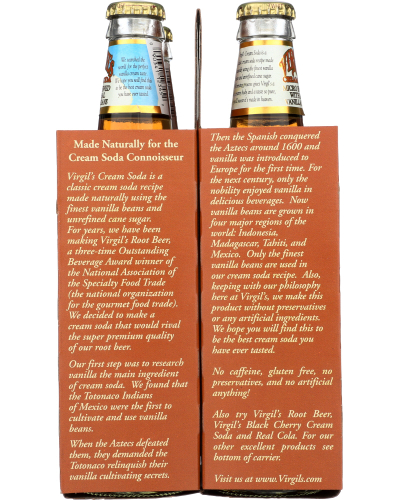 We searched the
world for the perfect
Made Naturally for the
Cream Soda Connoisseur
Virgil's Cream Soda is a
classic cream soda recipe
made naturally using the
finest vanilla beans and
unrefined cane sugar.
For years, we have been
making Virgil's Root Beer,
a three-time Outstanding
Beverage Award winner of
the National Association of
the Specialty Food Trade
(the national organization
for the gourmet food trade).
We decided to make a
cream soda that would rival
the super premium quality
of our root beer.
Our first step was to research
vanilla the main ingredient
of cream soda. We found that
the Totonaco Indians
of Mexico were the first to
cultivate and use vanilla
beans.
When the Aztecs defeated
them, they demanded the
Totonaco relinquish their
vanilla cultivating secrets.
Then the Spanish conquered
the Aztecs around 1600 and
vanilla was introduced to
Europe for the first time. For
the next century, only the
nobility enjoyed vanilla in
delicious beverages. Now
vanilla beans are grown in
four major regions of the
world: Indonesia,
Madagascar, Tahiti, and
Mexico. Only the finest
vanilla beans are used in
our cream soda recipe. Also,
keeping with our philosophy
here at Virgil's, we make this
product without preservatives
or any artificial ingredients.
We hope you will find this to
be the best cream soda you
have ever tasted.
No caffeine, gluten free, no
preservatives, and no artificial
anything!
Also try Virgil's Root Beer,
Virgil's Black Cherry Cream
Soda and Real Cola. For our
other excellent products see
bottom of carrier.
Visit us at www.Virgils.com